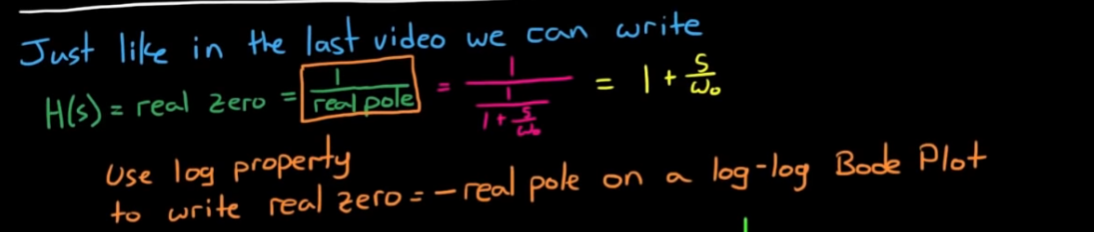 Just like in the last video we can write
H(s) = real zero = 1/(real pole) = 1/(1/(1 + s/ω₀)) = 1 + s/ω₀
Use log property
to write real zero = - real pole on a log-log Bode Plot